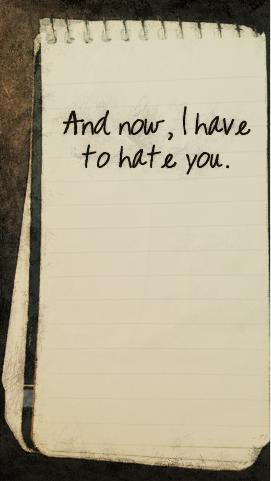 And now, I have
to hate you.